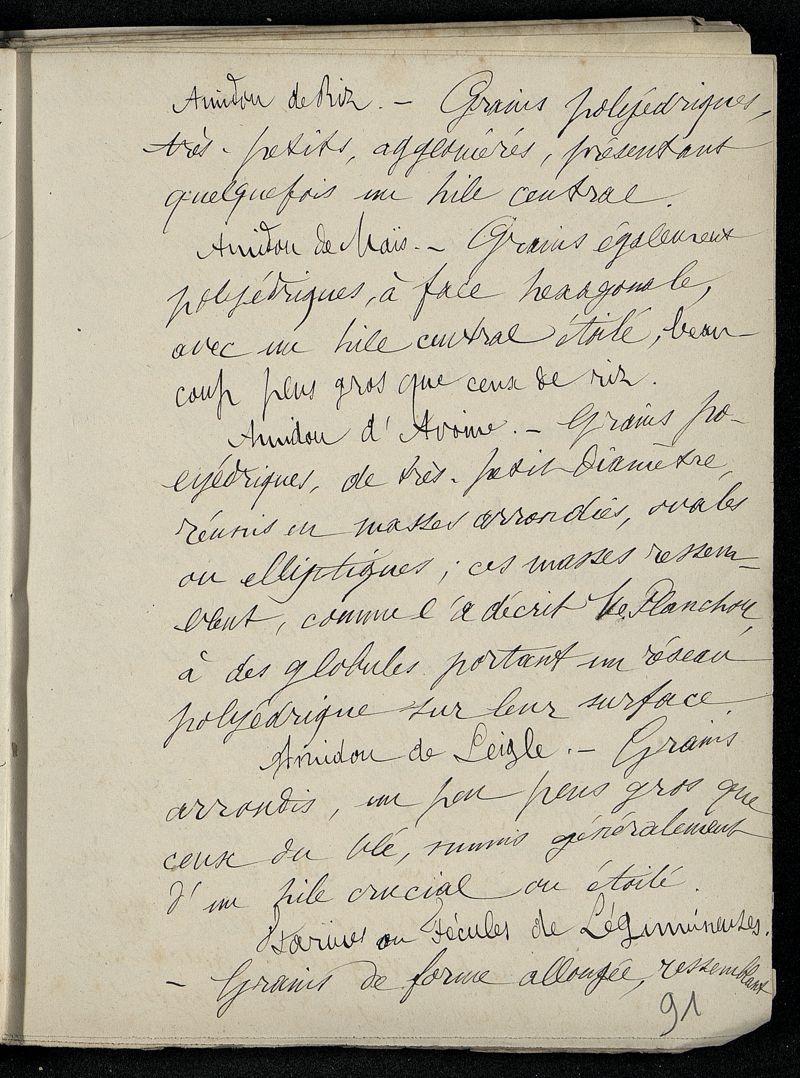 Amidon de Riz. — Grains polyédriques,
très-petits, agglomérés, présentant
quelquefois un hile central.
Amidon de Maïs. — Grains également
polyédriques, à face hexagonale,
avec un hile central étoilé, beau-
coup plus gros que ceux de riz.
Amidon d'Avoine. — Grains po-
lyédriques, de très-petit diamètre,
réunis en masses arrondies, ovales
ou elliptiques ; ces masses ressem-
blent, comme l'a décrit Planchon,
à des globules portant un réseau
polyédrique sur leur surface.
Amidon de Seigle. — Grains
arrondis, un peu plus gros que
ceux du blé, munis généralement
d'un hile crucial ou étoilé.
Farines ou Fécules de Légumineuses.
— Grains de forme allongée, ressemblant
91